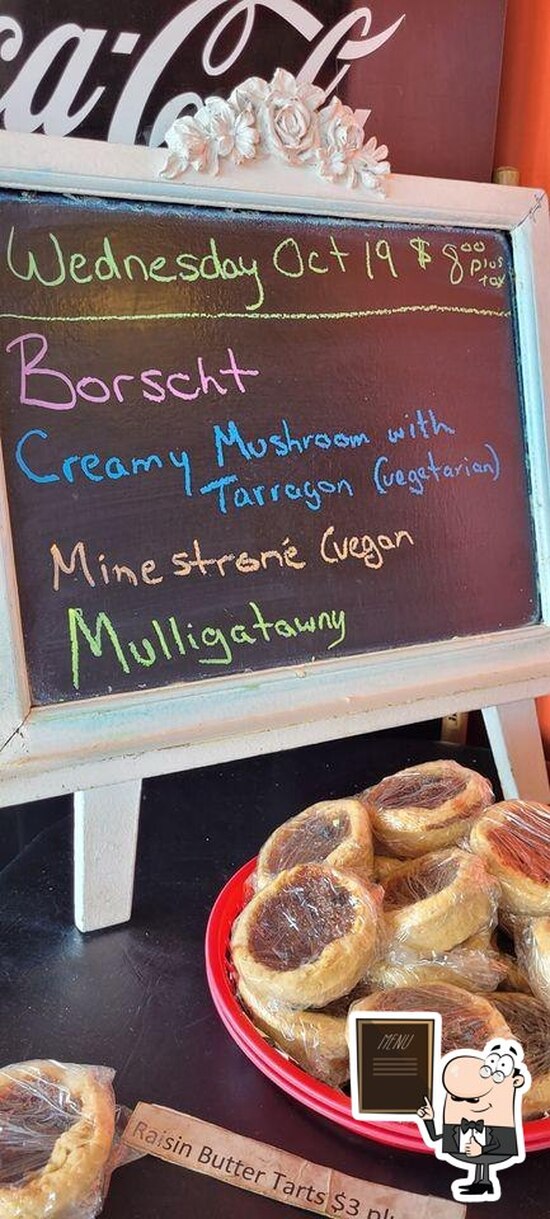 Wednesday Oct 19 $ 8.00 plus tax
Borscht
Creamy Mushroom with
Tarragon (vegetarian)
Minestroné (vegan
Mulligatawny
MENU
Raisin Butter Tarts $3 pl